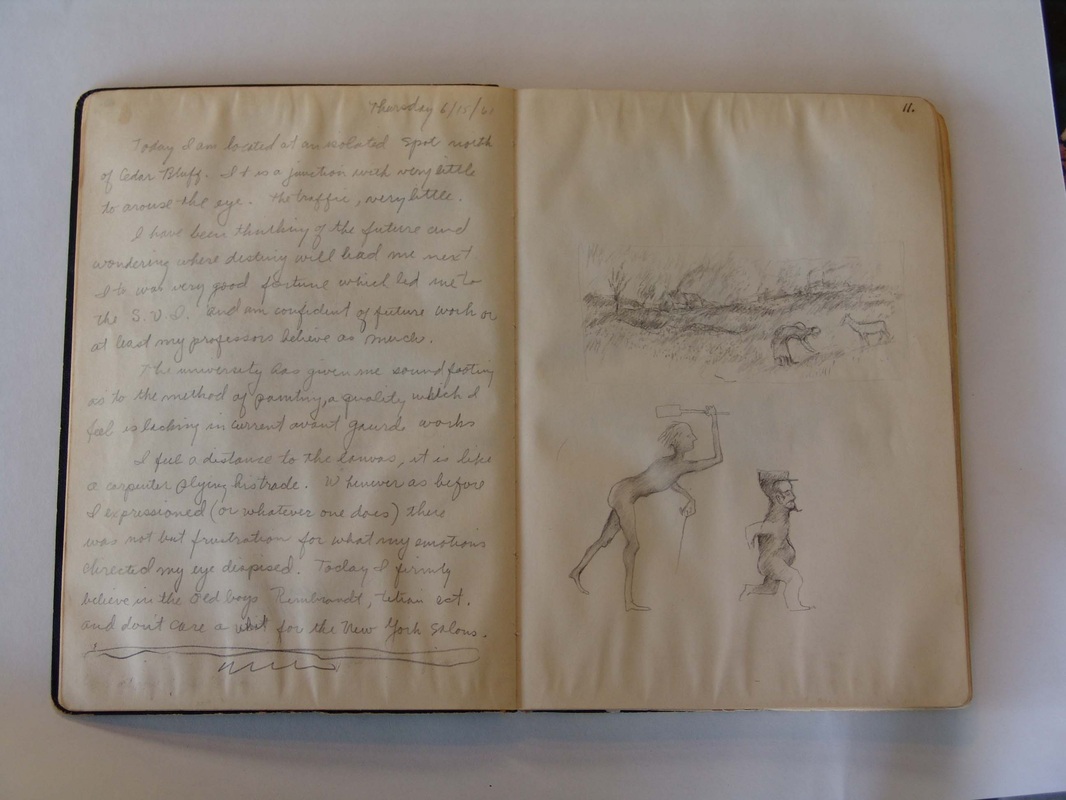 Thursday 6/15/61
Today I am located at an isolated spot north
of Cedar Bluff. It is a junction with very little
to arouse the eye. The traffic, very little.
I have been thinking of the future and
wondering where destiny will lead me next
It was very good fortune which led me to
the S.V.I. and am confident of future work or
at least my professors believe as much.
The university has given me sound footing
as to the method of painting, a quality which I
feel is lacking in current avant gaurde works
I feel a distance to the canvas, it is like
a carpenter plying his trade. Whenever as before
I expressioned (or whatever one does) there
was not but frustration for what my emotions
directed my eye despised. Today I firmly
believe in the old boys Rembrandt, Titian ect.
and don't care a whit for the New York Salons.
11.